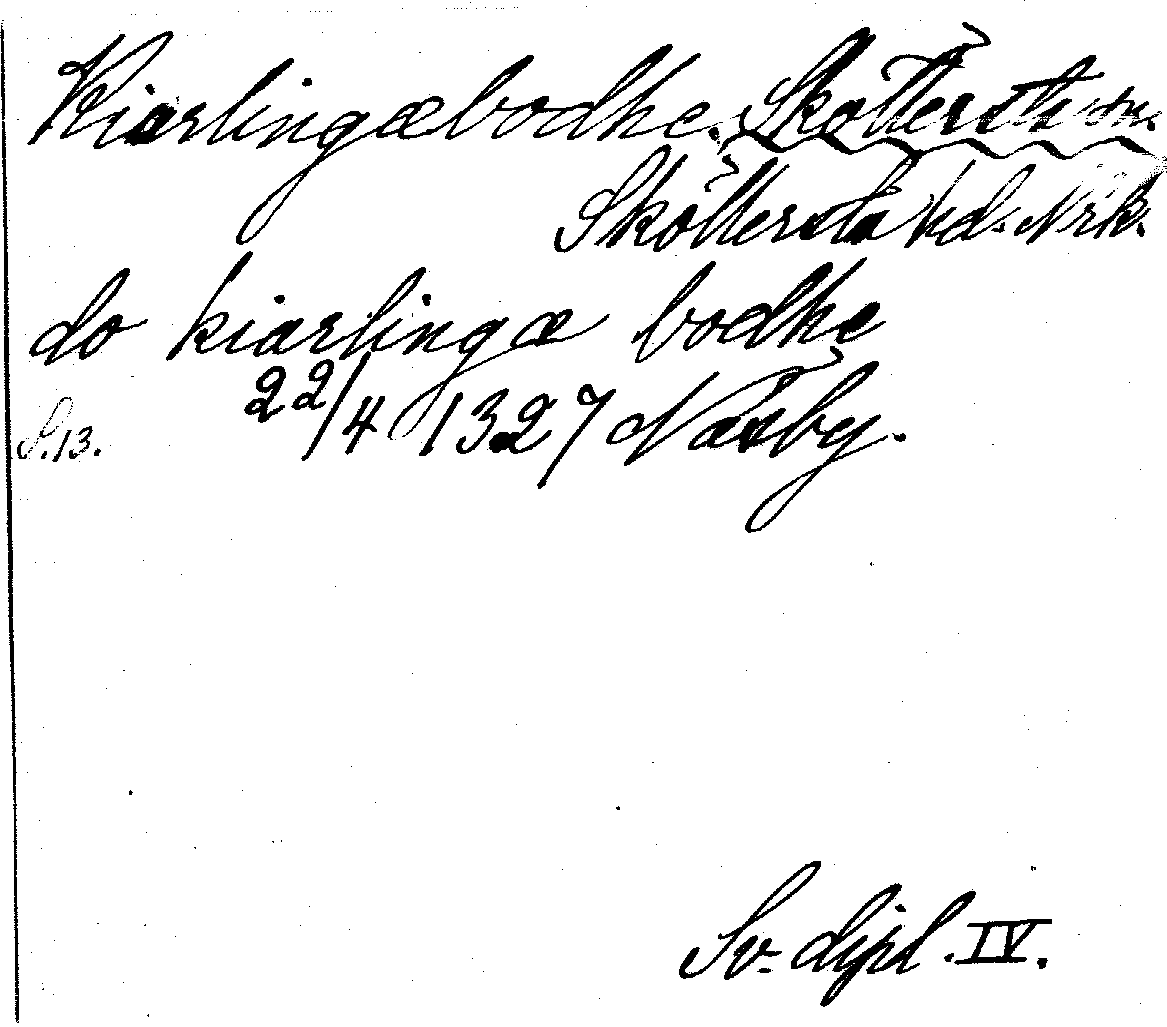 Kiarlingæbodhe. Skøllersta sn.
Skøllersta hd. Nrk.
do kiarlingæ bodhe
22/4 1327 Næsby.
S. 13.
Sv. dipl. IV.